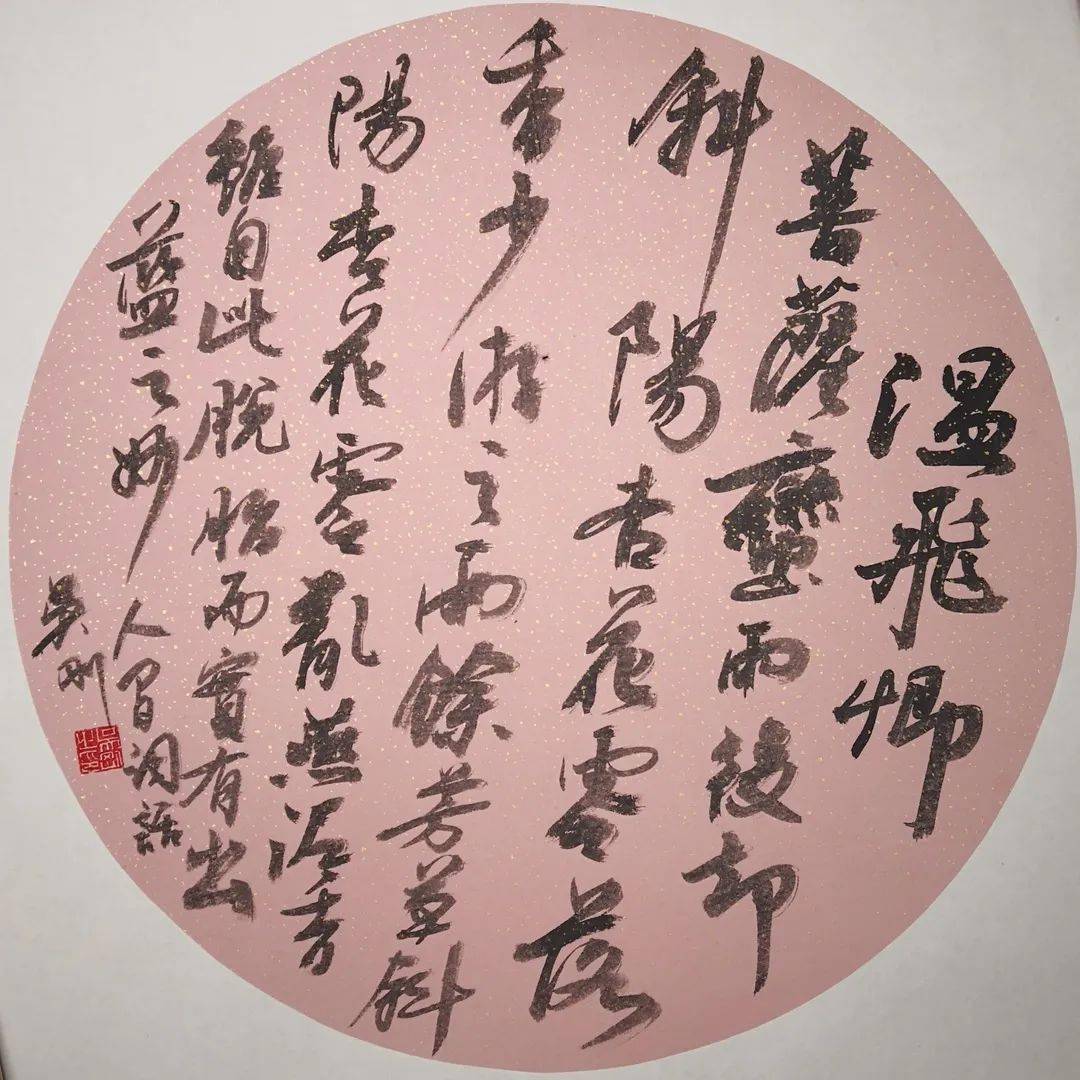 温飛卿
菩薩蠻雨後却
斜陽杏花零落
香少游之雨餘芳草斜
陽杏花零亂燕泥香
雖自此脫胎而實有出
藍之妙 人間詞話
吳剛